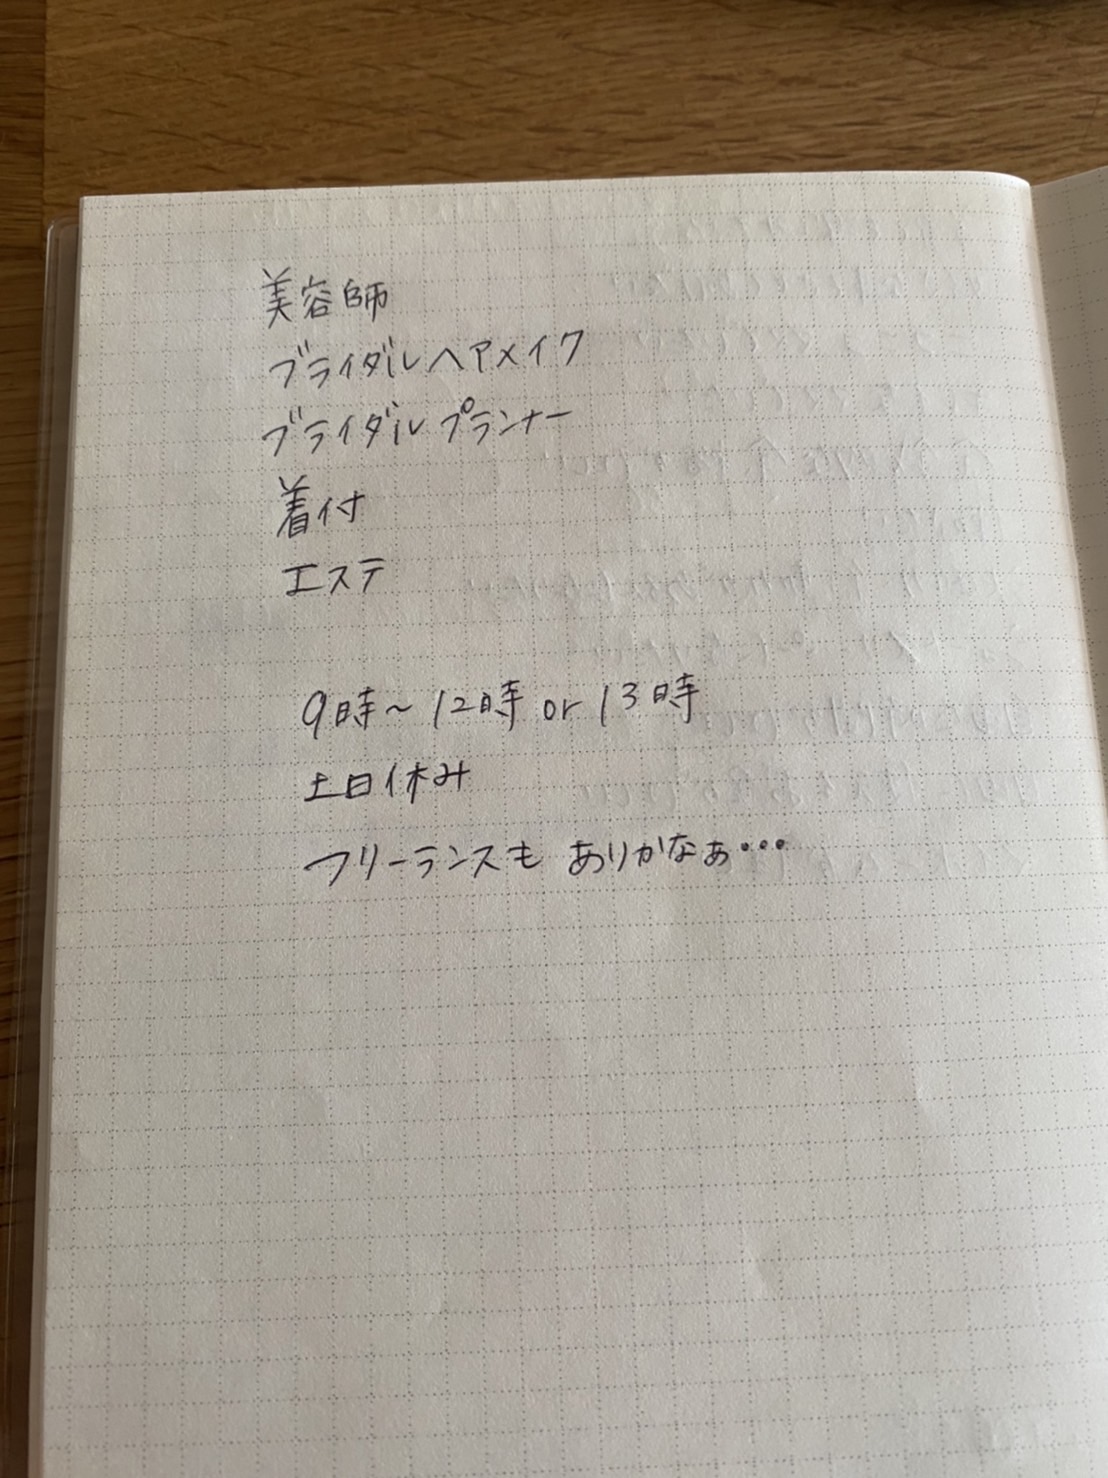 美容師
ブライダルヘアメイク
ブライダルプランナー
着付
エステ
9時~12時 or 13時
土日休み
フリーランスも ありかなぁ…